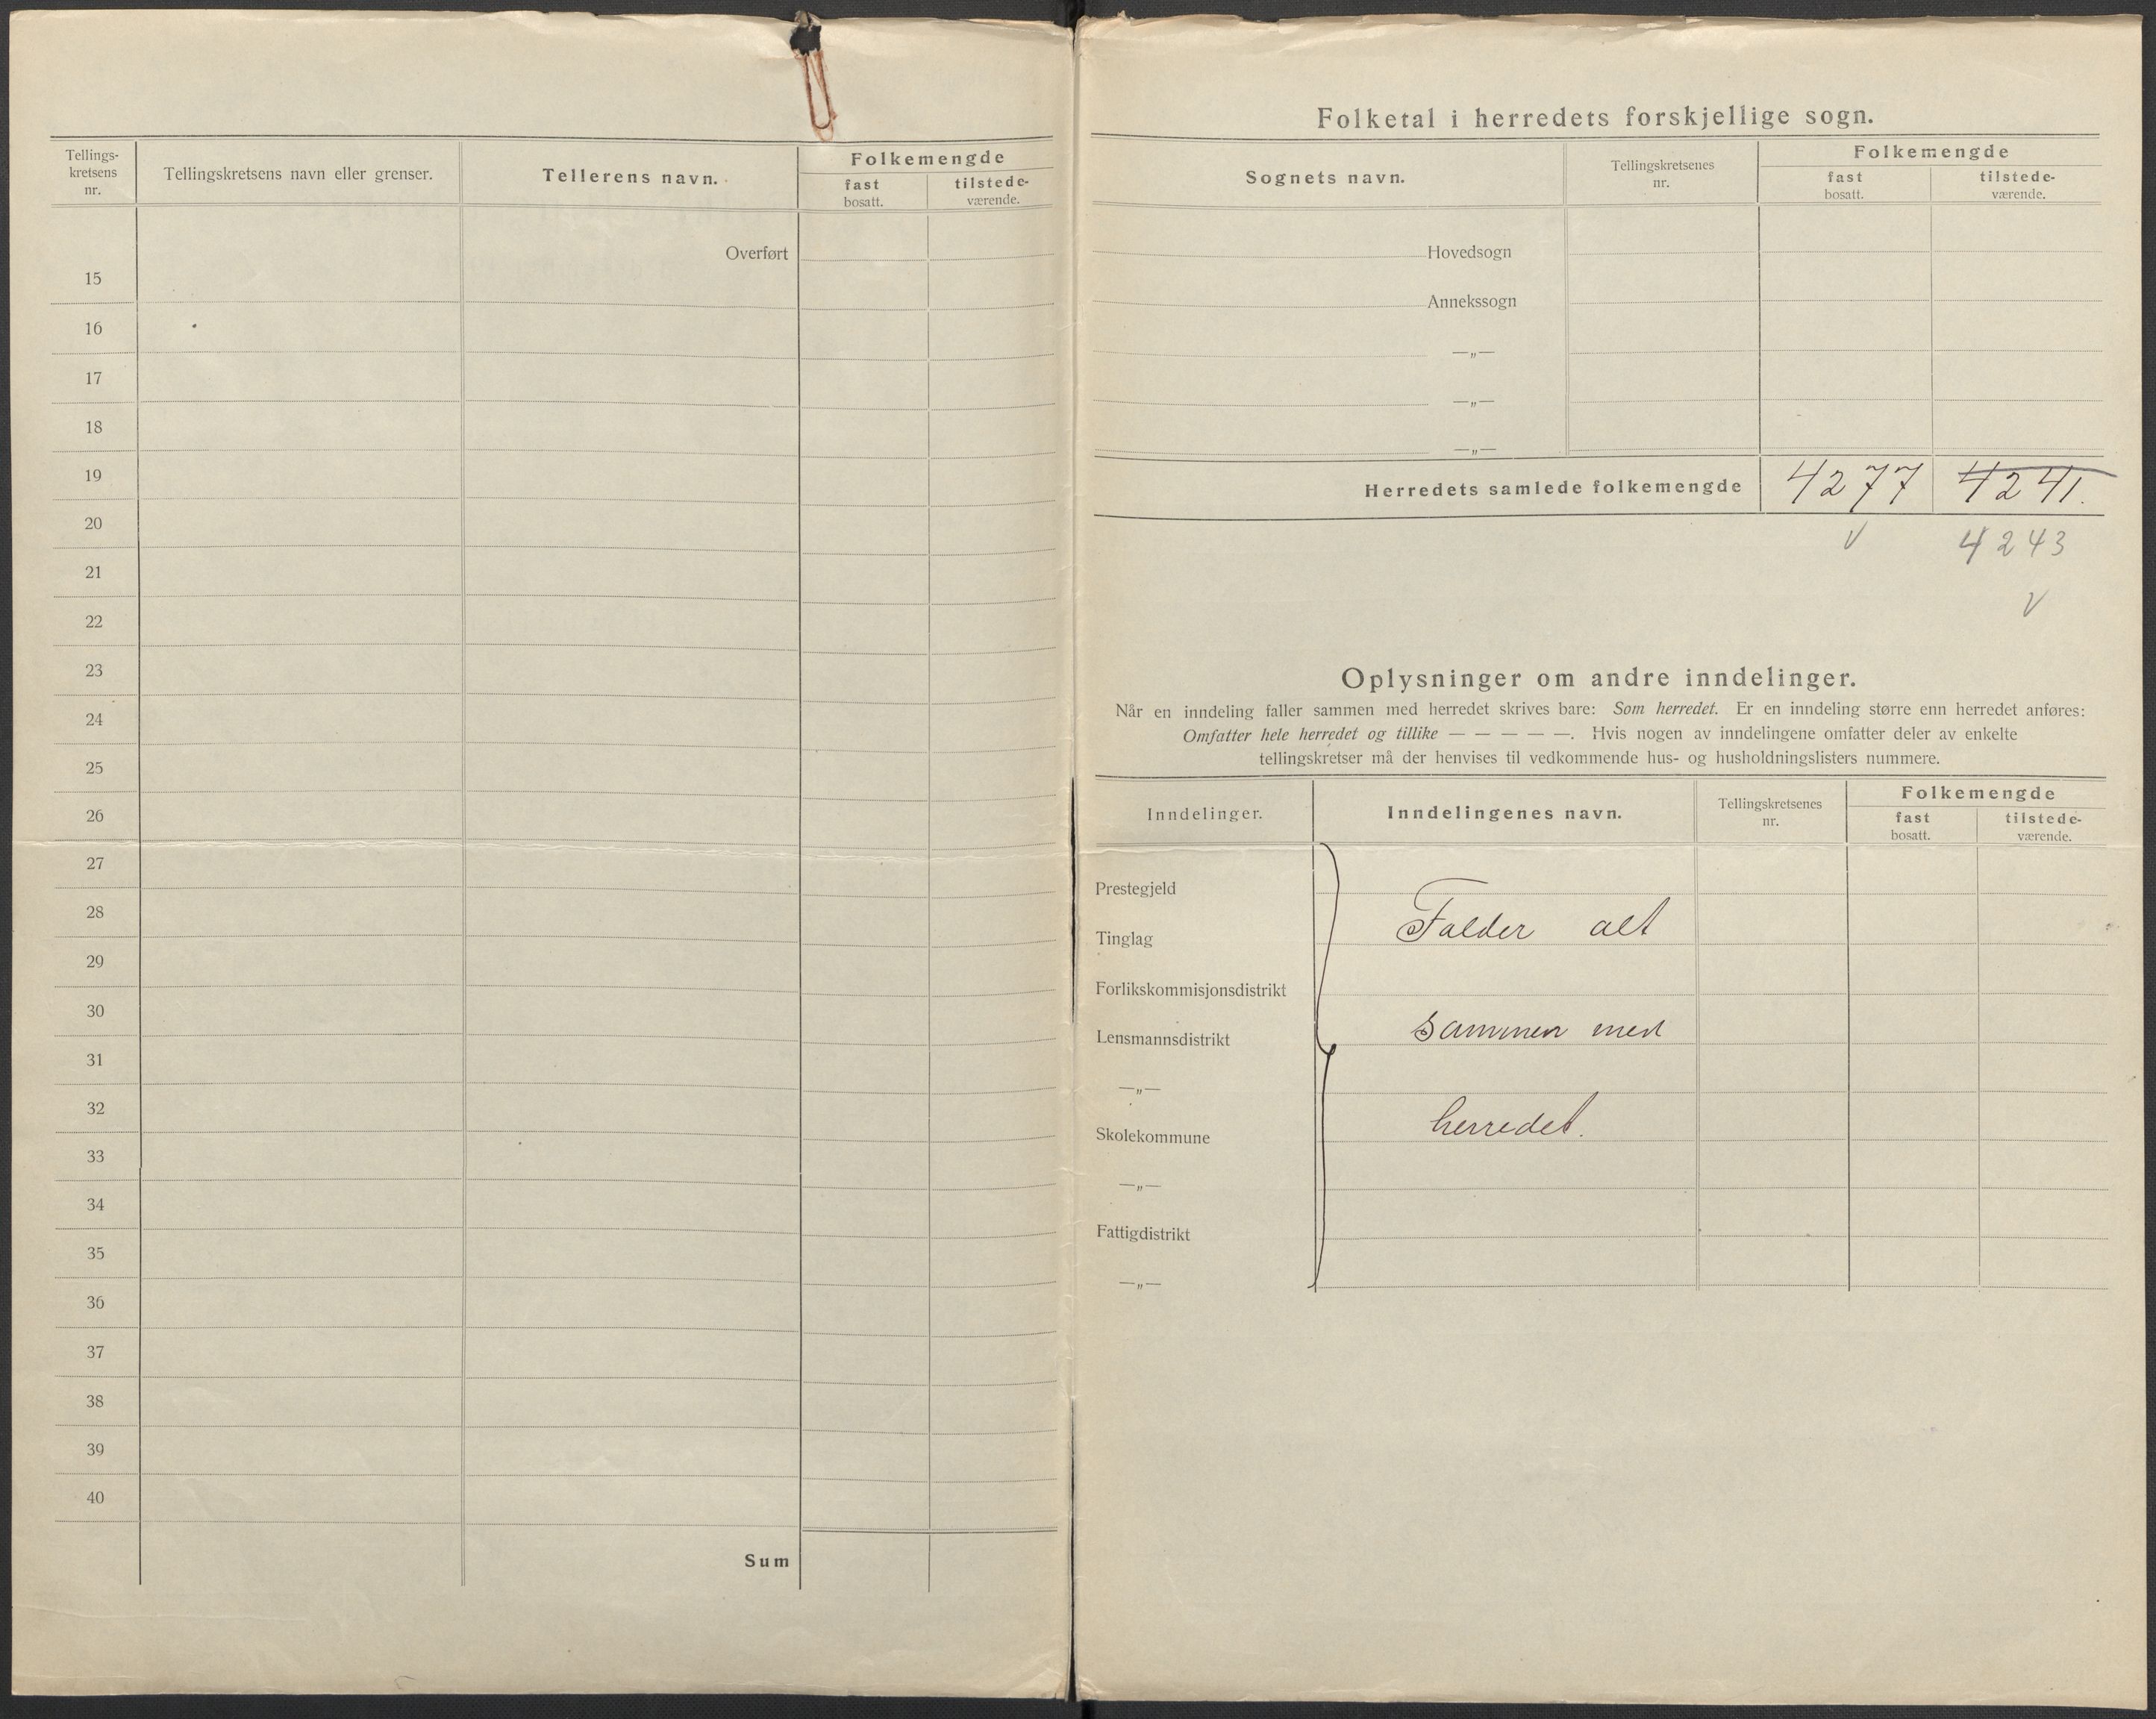 Tellings-
kretsens
nr.
Tellingskretsens navn eller grenser.
Tellerens navn.
Folkemengde
fast
bosatt.
tilstede-
værende.
Overført
15
16
17
18
19
20
21
22
23
24
25
26
27
28
29
30
31
32
33
34
35
36
37
38
39
40
Sum
Folketal i herredets forskjellige sogn.
Sognets navn.
Tellingskretsenes
nr.
Folkemengde
fast
bosatt.
tilstede-
værende.
Hovedsogn
Annekssogn
—„—
—„—
—„—
Herredets samlede folkemengde 4277 4241.
V 4243
V
Oplysninger om andre inndelinger.
Når en inndeling faller sammen med herredet skrives bare: Som herredet. Er en inndeling større enn herredet anføres:
Omfatter hele herredet og tillike — — — — —. Hvis nogen av inndelingene omfatter deler av enkelte
tellingskretser må der henvises til vedkommende hus- og husholdningslisters nummere.
Inndelinger.
Inndelingenes navn.
Tellingskretsenes
nr.
Folkemengde
fast
bosatt.
tilstede-
værende.
Prestegjeld
Falder alt
Tinglag
Forlikskommisjonsdistrikt
sammen med
Lensmannsdistrikt
—„—
herredet.
Skolekommune
—„—
Fattigdistrikt
—„—